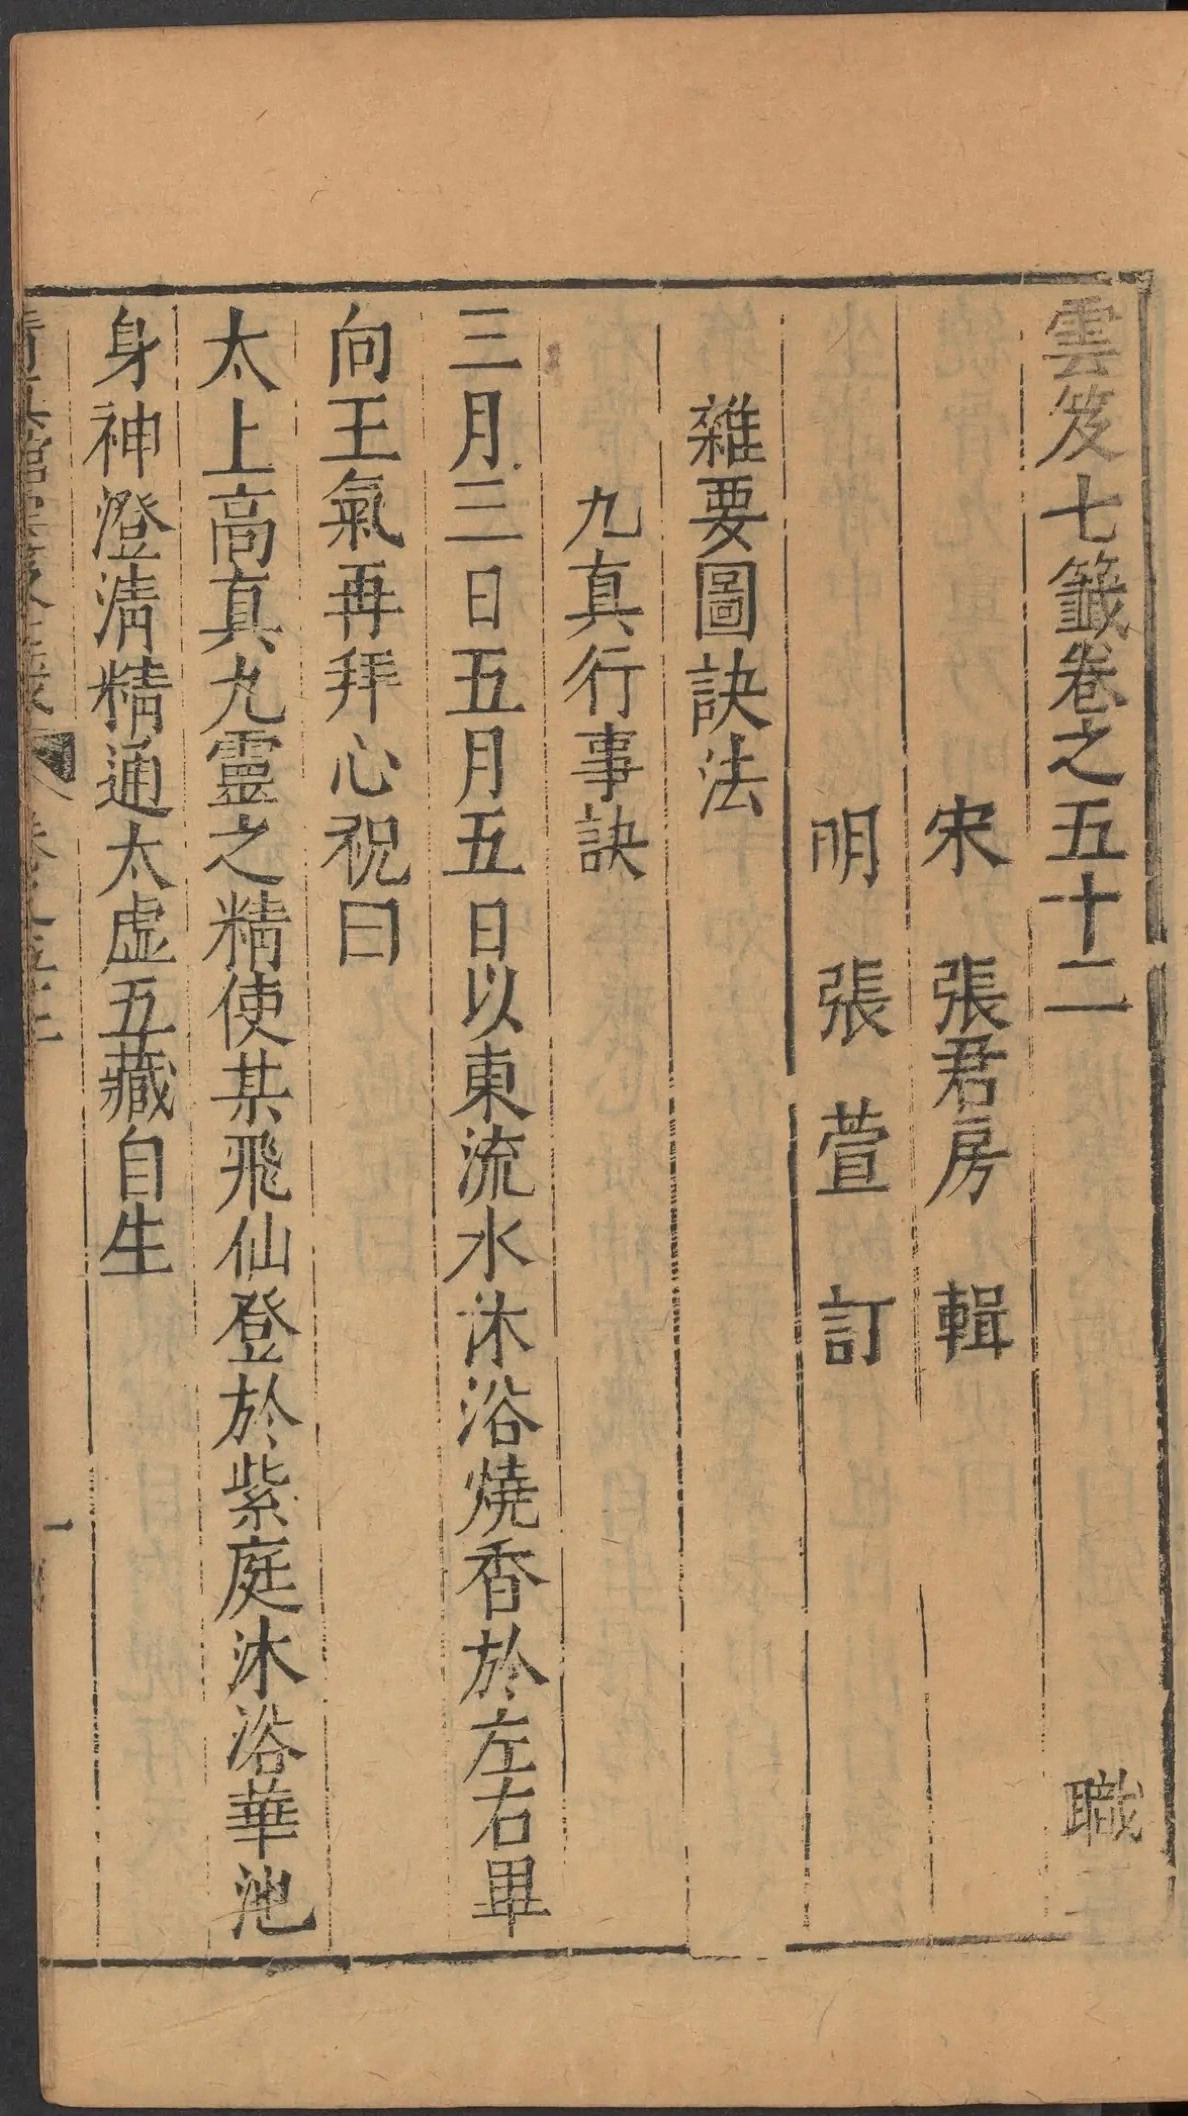 雲笈七籤卷之五十二 職一
宋 張君房 輯
明 張萱 訂
雜要圖訣法
九真行事訣
三月三日五月五日以東流水沐浴燒香於左右畢
向王氣再拜心祝曰
太上高真九靈之精使某飛仙登於紫庭沐浴華池
身神澄清精通太虛五藏自生
清真館雲笈七籤 卷之五十二 一